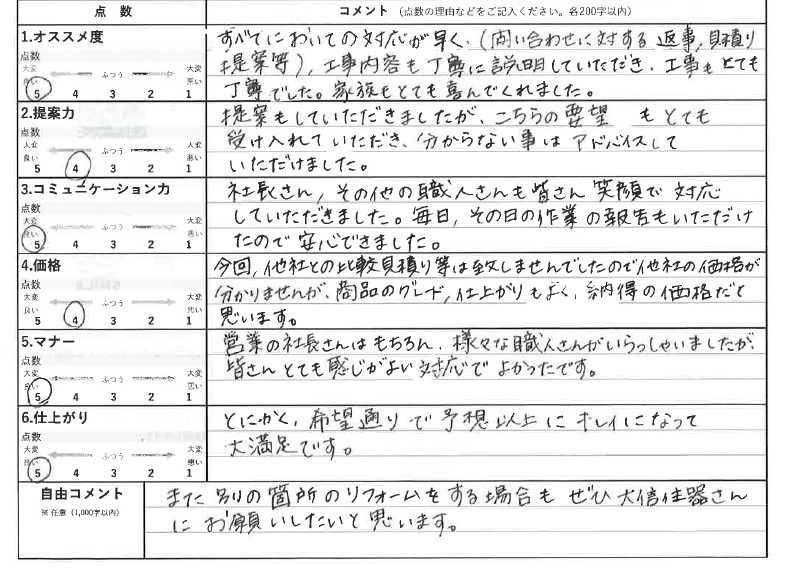 点数 コメント（点数の理由などをご記入ください。各200字以内）
1.オススメ度
点数
大変良い ふつう 大変悪い
5 4 3 2 1
すべてにおいての対応が早く、（問い合わせに対する返事,見積り
提案等）,工事内容も丁寧に説明していただき、工事もとても
丁寧でした。家族もとても喜んでくれました。
2.提案力
点数
大変良い ふつう 大変悪い
5 4 3 2 1
提案もしていただきましたが、こちらの要望 もとても
受け入れていただき、分からない事は アドバイスして
いただけました。
3.コミュニケーション力
点数
大変良い ふつう 大変悪い
5 4 3 2 1
社長さん,その他の職人さんも皆さん 笑顔で 対応
していただきました。毎日,その日の作業の報告もいただけ
たので安心できました。
4.価格
点数
大変良い ふつう 大変悪い
5 4 3 2 1
今回,他社との比較見積り等は致しませんでしたので他社の価格が
分かりませんが、商品のグレード,仕上がりもよく、納得の価格だと
思います。
5.マナー
点数
大変良い ふつう 大変悪い
5 4 3 2 1
営業の社長さんはもちろん、様々な職人さんがいらっしゃいましたが、
皆さんとても感じがよい対応でよかったです。
6.仕上がり
点数
大変良い ふつう 大変悪い
5 4 3 2 1
とにかく、希望通りで予想以上にキレイになって
大満足です。
自由コメント
※ 任意（1,000字以内）
また別の箇所のリフォームをする場合も ぜひ大信住器さん
にお願いしたいと思います。